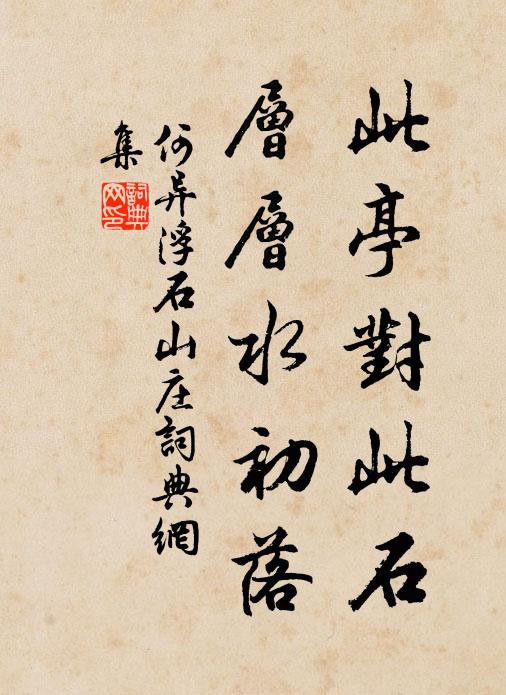 此亭對此石
層層水初落
何異浮石山庄詞典網
集
詞典网印